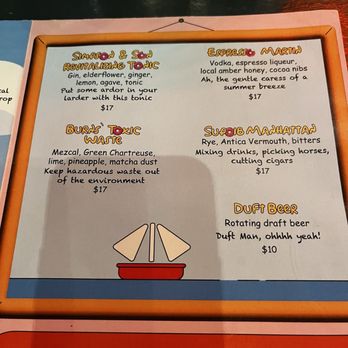 Simpson & Son
Revitalizing Tonic
Gin, elderflower, ginger,
lemon, agave, tonic
Put some ardor in your
larder with this tonic
$17
Burns' Toxic
Waste
Mezcal, Green Chartreuse,
lime, pineapple, matcha dust
Keep hazardous waste out
of the environment
$17
Espresso Martin
Vodka, espresso liqueur,
local amber honey, cocoa nibs
Ah, the gentle caress of a
summer breeze
$17
Manhattan
Rye, Antica Vermouth, bitters
Mixing drinks, picking horses,
cutting cigars
$17
Duft Beer
Rotating draft beer
Duft Man, ohhhh yeah!
$10